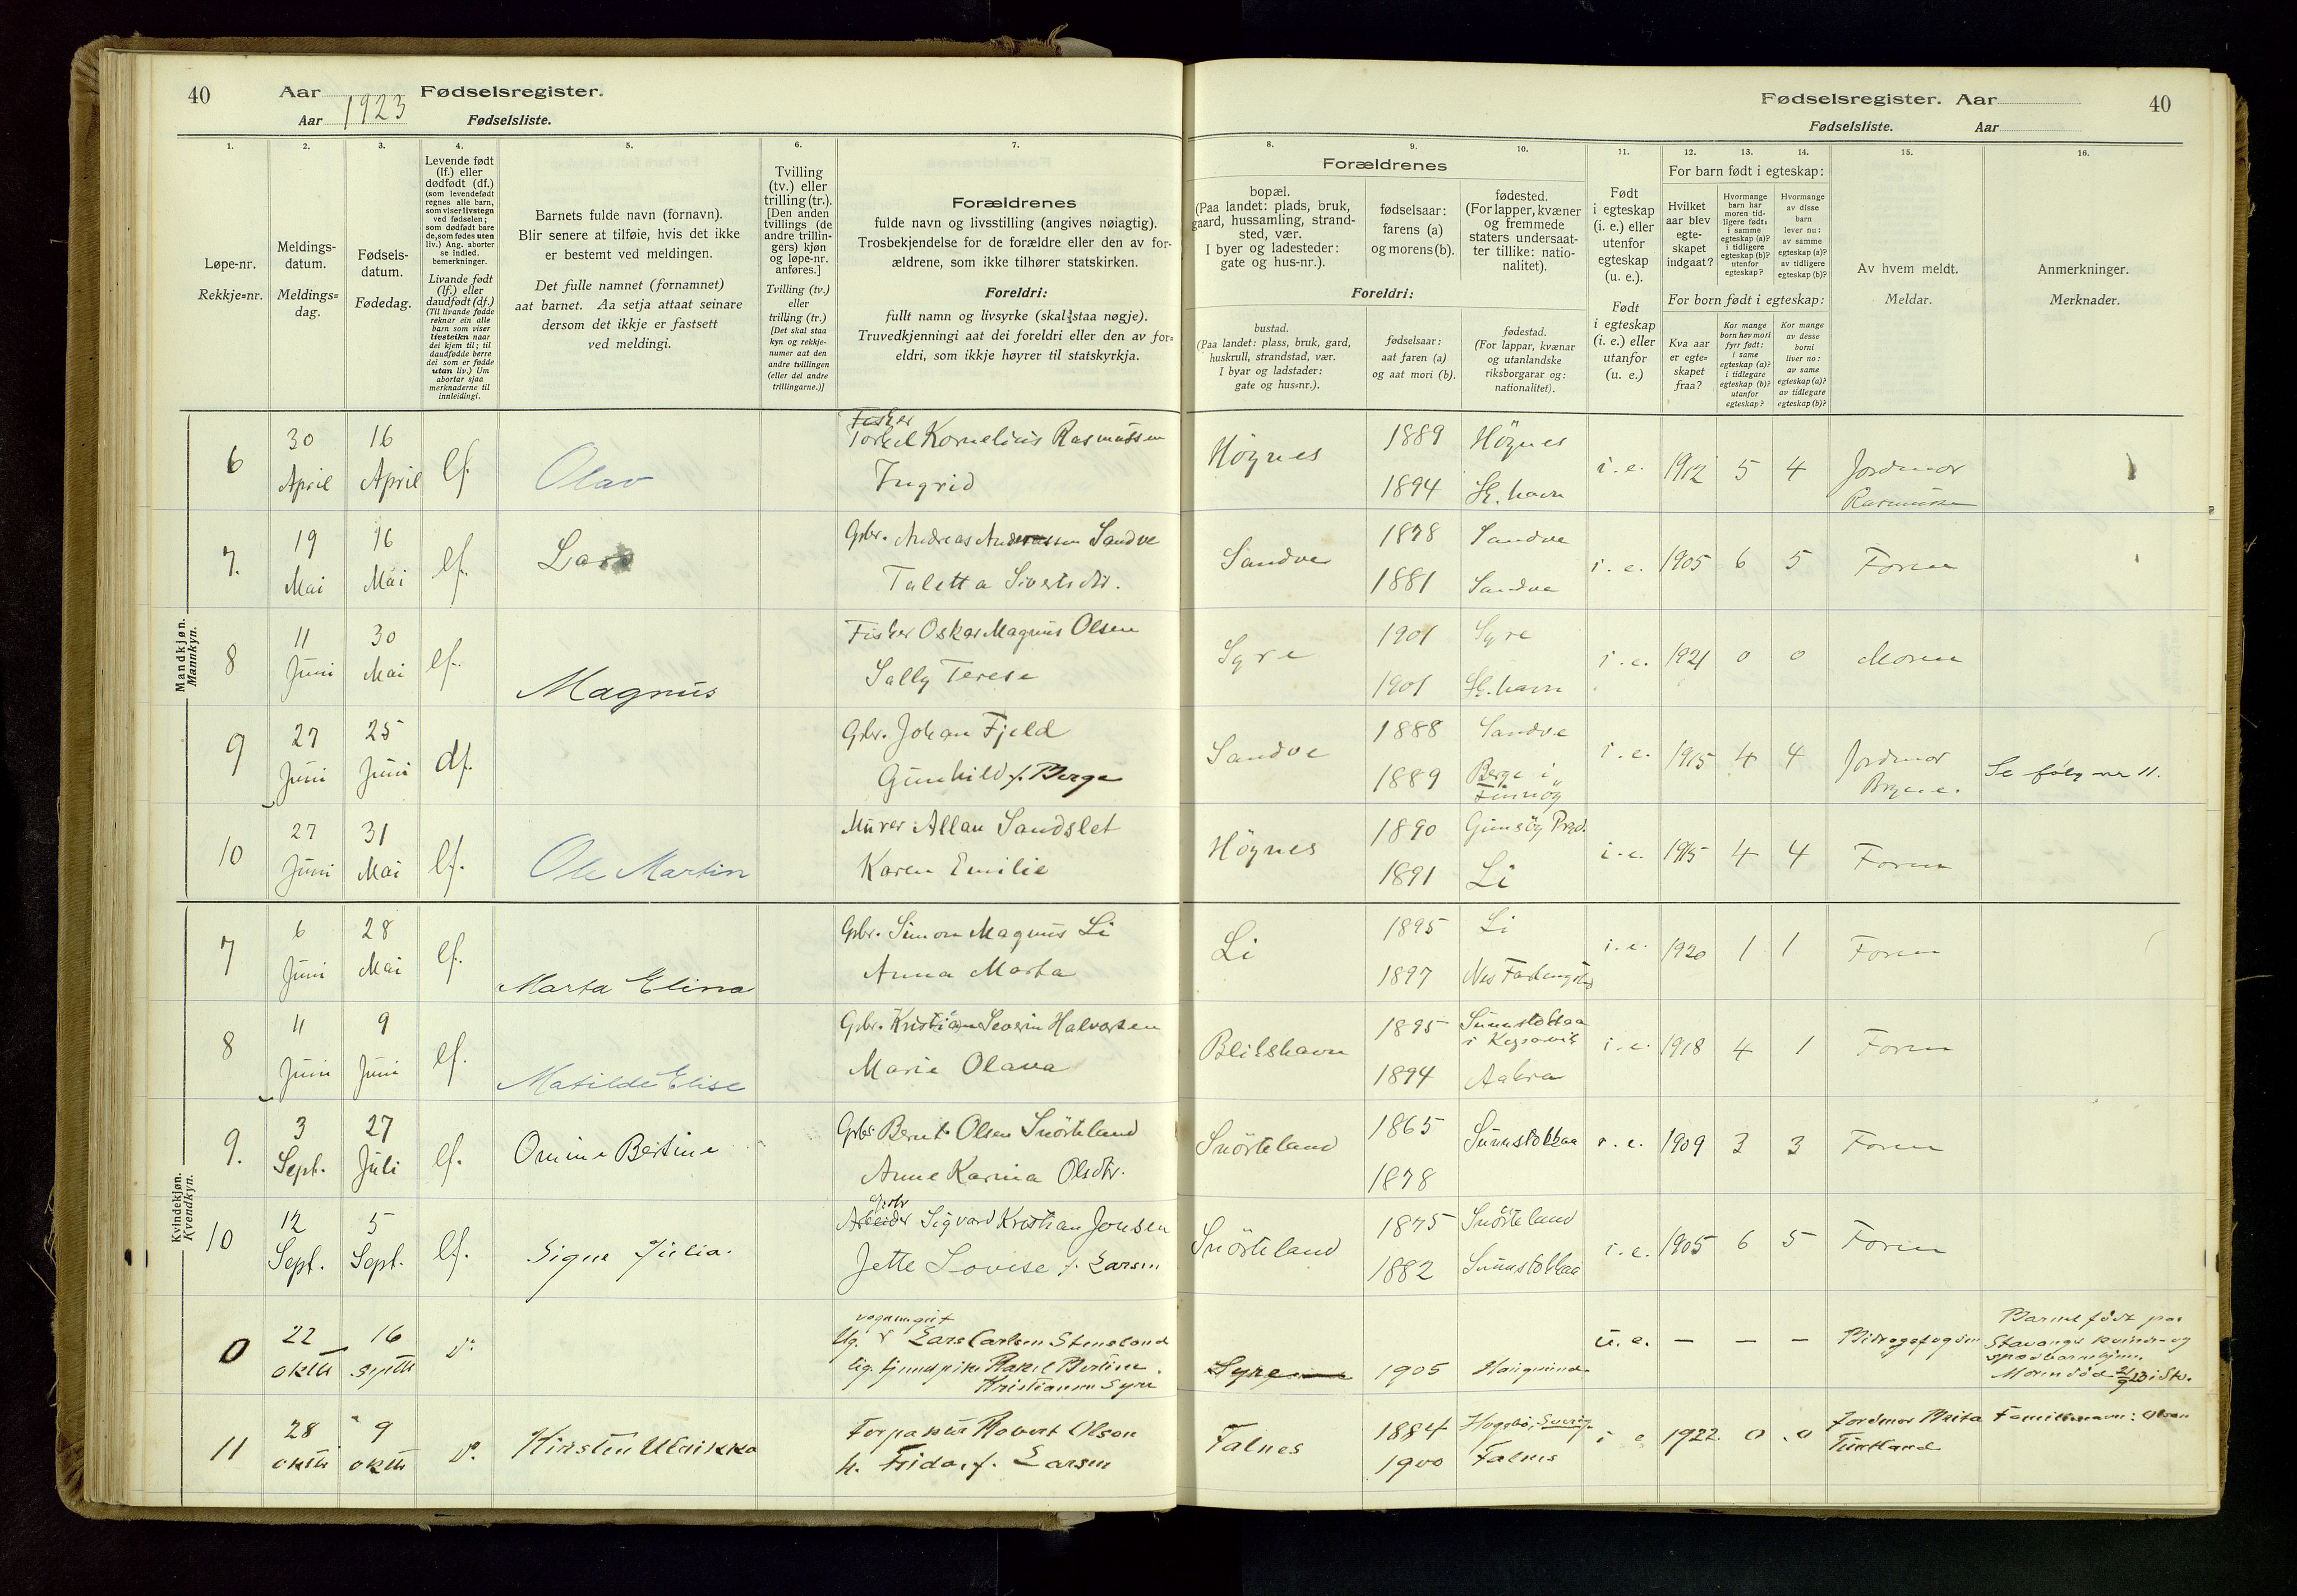 40 Aar 1923 Fødselsregister.
Aar Fødselsliste.
Fødselsregister. Aar 40
Fødselsliste. Aar
1. 2. 3. 4. 5. 6. 7. 8. 9. 10. 11. 12. 13. 14. 15. 16.
Løpe-nr.
Rekkje=nr.
Meldings-
datum.
Meldings=
dag.
Fødsels-
datum.
Fødedag.
Levende født
(lf.) eller
dødfødt (df.)
(som levendefødt
regnes alle barn,
som viser livstegn
ved fødselen;
som dødfødt bare
de, som fødes uten
liv.) Ang. aborter
se indled.
bemerkninger.
Livande født
(lf.) eller
daudfødt (df.)
(Til livande fødde
reknar ein alle
barn som viser
livsteikn naar
dei kjem til; til
daudfødde berre
dei som er fødde
utan liv.) Um
abortar sjaa
merknaderne til
innleidingi.
Barnets fulde navn (fornavn).
Blir senere at tilføie, hvis det ikke
er bestemt ved meldingen.
Det fulle namnet (fornamnet)
aat barnet. Aa setja attaat seinare
dersom det ikkje er fastsett
ved meldingi.
Tvilling
(tv.) eller
trilling (tr.).
[Den anden
tvillings (de
andre trillin-
gers) kjøn
og løpe-nr.
anføres.]
Tvilling (tv.)
eller
trilling (tr.)
[Det skal staa
kyn og rekkje-
numer aat den
andre tvillingen
(eller dei andre
trillingarne.)]
Forældrenes
fulde navn og livsstilling (angives nøiagtig).
Trosbekjendelse for de forældre eller den av for-
ældrene, som ikke tilhører statskirken.
Foreldri:
fullt namn og livsyrke (skal staa nøgje).
Truvedkjenningi aat dei foreldri eller den av for=
eldri, som ikkje høyrer til statskyrkja.
Forældrenes
bopæl.
(Paa landet: plads, bruk,
gaard, hussamling, strand-
sted, vær.
I byer og ladesteder:
gate og hus-nr.).
fødselsaar:
farens (a)
og morens (b).
fødested.
(For lapper, kvæner
og fremmede
staters undersaat-
ter tillike: natio-
nalitet).
Foreldri:
bustad.
(Paa landet: plass, bruk, gard,
huskrull, strandstad, vær.
I byar og ladstader:
gate og hus=nr.).
fødselsaar:
aat faren (a)
og aat mori (b).
fødestad.
(For lappar, kvænar
og utanlandske
riksborgarar og:
nationalitet).
Født
i egteskap
(i. e.) eller
utenfor
egteskap
(u. e.).
Født
i egteskap
(i. e.) eller
utanfor
(u. e.)
For barn født i egteskap:
Hvilket
aar blev
egte-
skapet
indgaat?
Hvormange
barn har
moren tid-
ligere født:
i samme
egteskap (a)?
i tidligere
egteskap (b)?
utenfor
egteskap?
Hvormange
av disse
barn
lever nu:
av samme
egteskap (a)?
av tidligere
egteskap (b)?
For born født i egteskap:
Kva aar
er egte=
skapet
fraa?
Kor mange
born hev mori
fyrr født:
i same
egteskap (a)?
i tidlegare
egteskap (b)?
utanfor
egteskap?
Kor mange
av desse
borni
liver no:
av same
egteskap (a)?
av tidlegare
egteskap (b)?
Av hvem meldt.
Meldar.
Anmerkninger.
Merknader.
Mandkjøn.
Mannkyn.
6 30 April 16 April lf. Olav
Fisker
Torkel Kornelius Rasmussen
Ingrid
Höynes 1889 Höynes
1894 Sk. havn
i. e. 1912 5 4 Jordmor
Rasmussen
7. 19 Mai 16 Mai lf. Lars
Gbr. Andreas Andreassen Sandve
Taletta Sivertsdtr.
Sandve 1878 Sandve
1881 Sandve
i. e. 1905 6 5 Faren
8 11 Juni 30 Mai lf. Magnus
Fisker Oskar Magnus Olsen
Sally Terese
Syre 1901 Syre
1901 Sk. havn
i. e. 1921 0 0 Moren
9 27 Juni 25 Juni df.
Gbr. Johan Fjeld
Gunhild f. Berge
Sandve 1888 Sandve
1889 Berge i
Finnöy
i. e. 1915 4 4 Jordmor
Se følg nr 11.
10 27 Juni 31 Mai lf. Ole Martin
Murer Allan Sandslet
Karen Emilie
Höynes 1890 Gimsöy
1891 Li
i. e. 1915 4 4 Faren
Kvindekjøn.
Kvendkyn.
7 6 Juni 28 Mai lf. Marta Elina
Gbr. Simon Magnus Li
Anna Marta
Li 1895 Li
1897 Nes
i. e. 1920 1 1 Faren
8 11 Juni 9 Juni lf. Matilde Elise
Gbr. Kristian Severin Halvorsen
Marie Olava
Blikshavn 1895 Sunnstokkaa
i
1894 Aakra
i. e. 1918 4 1 Faren
9. 3 Sept. 27 Juli lf. Omine Bertine
Gbr. Bernt Olsen Snörteland
Anne Karina Olsdtr.
Snörteland 1865 Sunnstokkaa
1878
i. e. 1909 3 3 Faren
10 12 Sept. 5 Sept. lf. Signe Julia.
Gbr
Arbeider Sigvard Kristian Jonsen
Jette Lovise f. Larsen
Snörteland 1875 Snörteland
1882 Sunnstokkaa
i. e. 1905 6 5 Faren
0 22 oktbr 16 septbr
Ug. Lars Carlsen Stensland
Ug. tjenestpike Rakel Bertine
Kristiansen Syre
Syre 1905 Haugesund
u. e. — — — Bidragsfogden
Barnet født paa
Stavanger kvinde- og
spædbarnhjem.
Moren død
11 28 oktbr 9 oktbr Kirsten Ulrikka
Forpakter Robert Olson
h. Frida, f. Larsen
Falnes 1884 Sverig.
1900 Falnes
i e 1922. 0 0 Jordmor Brita
Familienavn: Olson